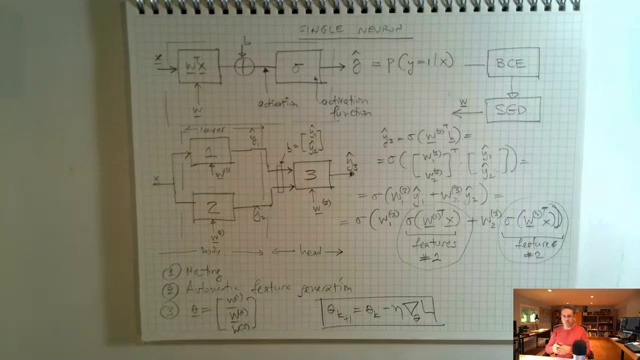 SINGLE NEURON
x
w^T x
σ
ŷ = p(y=1|x)
BCE
w
activation
activation
function
w
SGD
layer
ŷ1
1
w^(1)
x
h = [ŷ1 ŷ2]
3
ŷ3
w^(3)
2
ŷ2
w^(2)
head
ŷ3 = σ(w^(3)T h) =
= σ([w1^(3) w2^(3)]^T [ŷ1 ŷ2]) =
= σ(w1^(3) ŷ1 + w2^(3) ŷ2) =
= σ(w1^(3) σ(w^(1)T x) + w2^(3) σ(w^(2)T x))
features
#2
features
#2
① Nesting
② Automatic feature generation
③ θ = [w^(1) w^(2) w^(3)]
θ_{k+1} = θ_k - η ∇_θ L